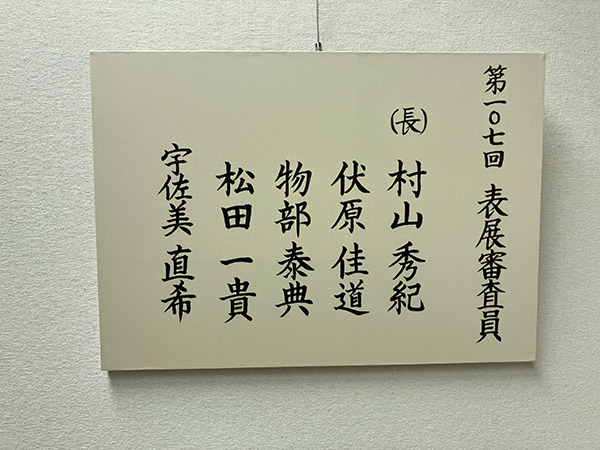 第一〇七回 表展審査員
(長) 村山 秀紀
伏原 佳道
物部 泰典
松田 一貴
宇佐美 直希